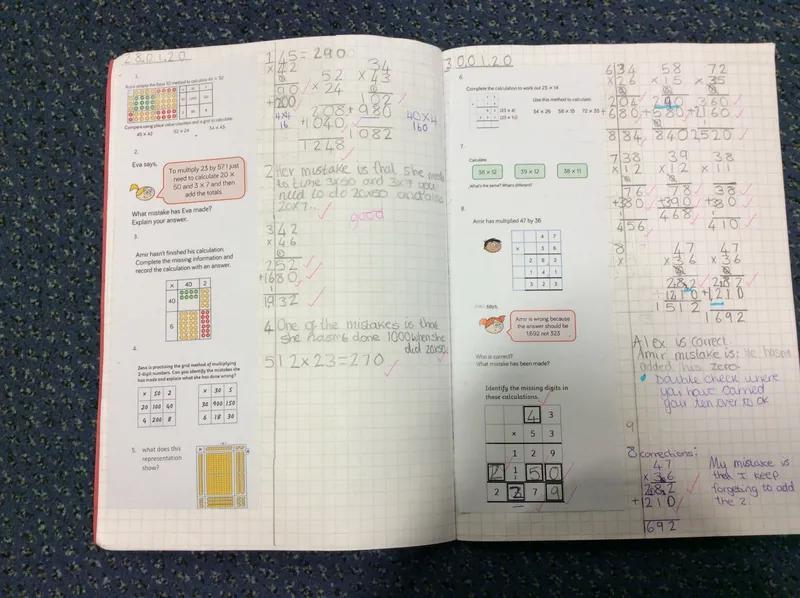 28.01.20
1.
Use to calculate 45 × 42
Compare using place value counters and a grid to calculate:
45 × 42 52 × 24 34 × 43
2.
Eva says,
To multiply 23 by 57 I just
need to calculate 20 ×
50 and 3 × 7 and then
add the totals.
What mistake has Eva made?
Explain your answer.
3.
Amir hasn't finished his calculation.
Complete the missing information and
record the calculation with an answer.
× 40 2
40
6
4.
Zena is practising the grid method of multiplying
2-digit numbers. Can you identify the mistakes she
has made and explain what she has done wrong?
× 50 2
20 100 40
4 200 8
× 30 5
30 900 150
6 18 30
5. what does this
representation
show?
1 45 = 290
× 42
90
+ 200
4×4
16
52
× 24
208
+ 1040
1248
34
× 43
102
+ 980
1082
40×4
160
2 Her mistake is that she
to time 3×50 and 3×7 you
need to do 20×50 and
20×7.
good
3 42
× 46
252
+ 1680
1932
4 One of the mistakes is that
she hasn't done 1000 when she
did 20×50
5 12 × 23 = 270
30.01.20
6.
Complete the calculation to work out 23 × 14
Use this method to calculate:
34 × 26 58 × 15 72 × 35
7.
Calculate
38 × 12 39 × 12 38 × 11
What's the same? What's different?
8.
Amir has multiplied 47 by 36
4 7
× 3 6
2 8 2
1 4 1
3 2 3
says,
Amir is wrong because
the answer should be
1,692 not 323
Who is correct?
What mistake has been made?
Identify the missing digits in
these calculations.
4 3
× 5 3
1 2 9
2 1 5 0
2 2 7 9
6 34
× 26
204
+ 680
884
58
× 15
290
+ 580
840
72
× 35
360
+ 2160
2520
7 38
× 12
76
+ 380
456
39
× 12
78
+ 390
468
38
× 11
38
+ 380
410
8
×
47
× 36
282
1210
1512
47
× 36
282
+ 1210
1692
Alex is correct.
Amir mistake is: He hasn't
added his zero.
Double check where
you have carried
your ten over to ok
9
8 corrections:
47
× 36
282
+ 1210
1692
My mistake is
that I keep
forgeting to add
the 2.